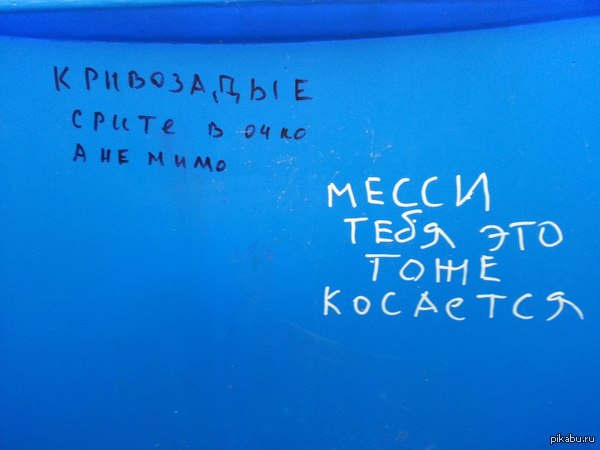 КРИВОЗАДЫЕ
СРИТЕ В ОЧКО
А НЕ МИМО
МЕССИ
ТЕБЯ ЭТО
ТОЖЕ
КОСАЕТСЯ
pikabu.ru